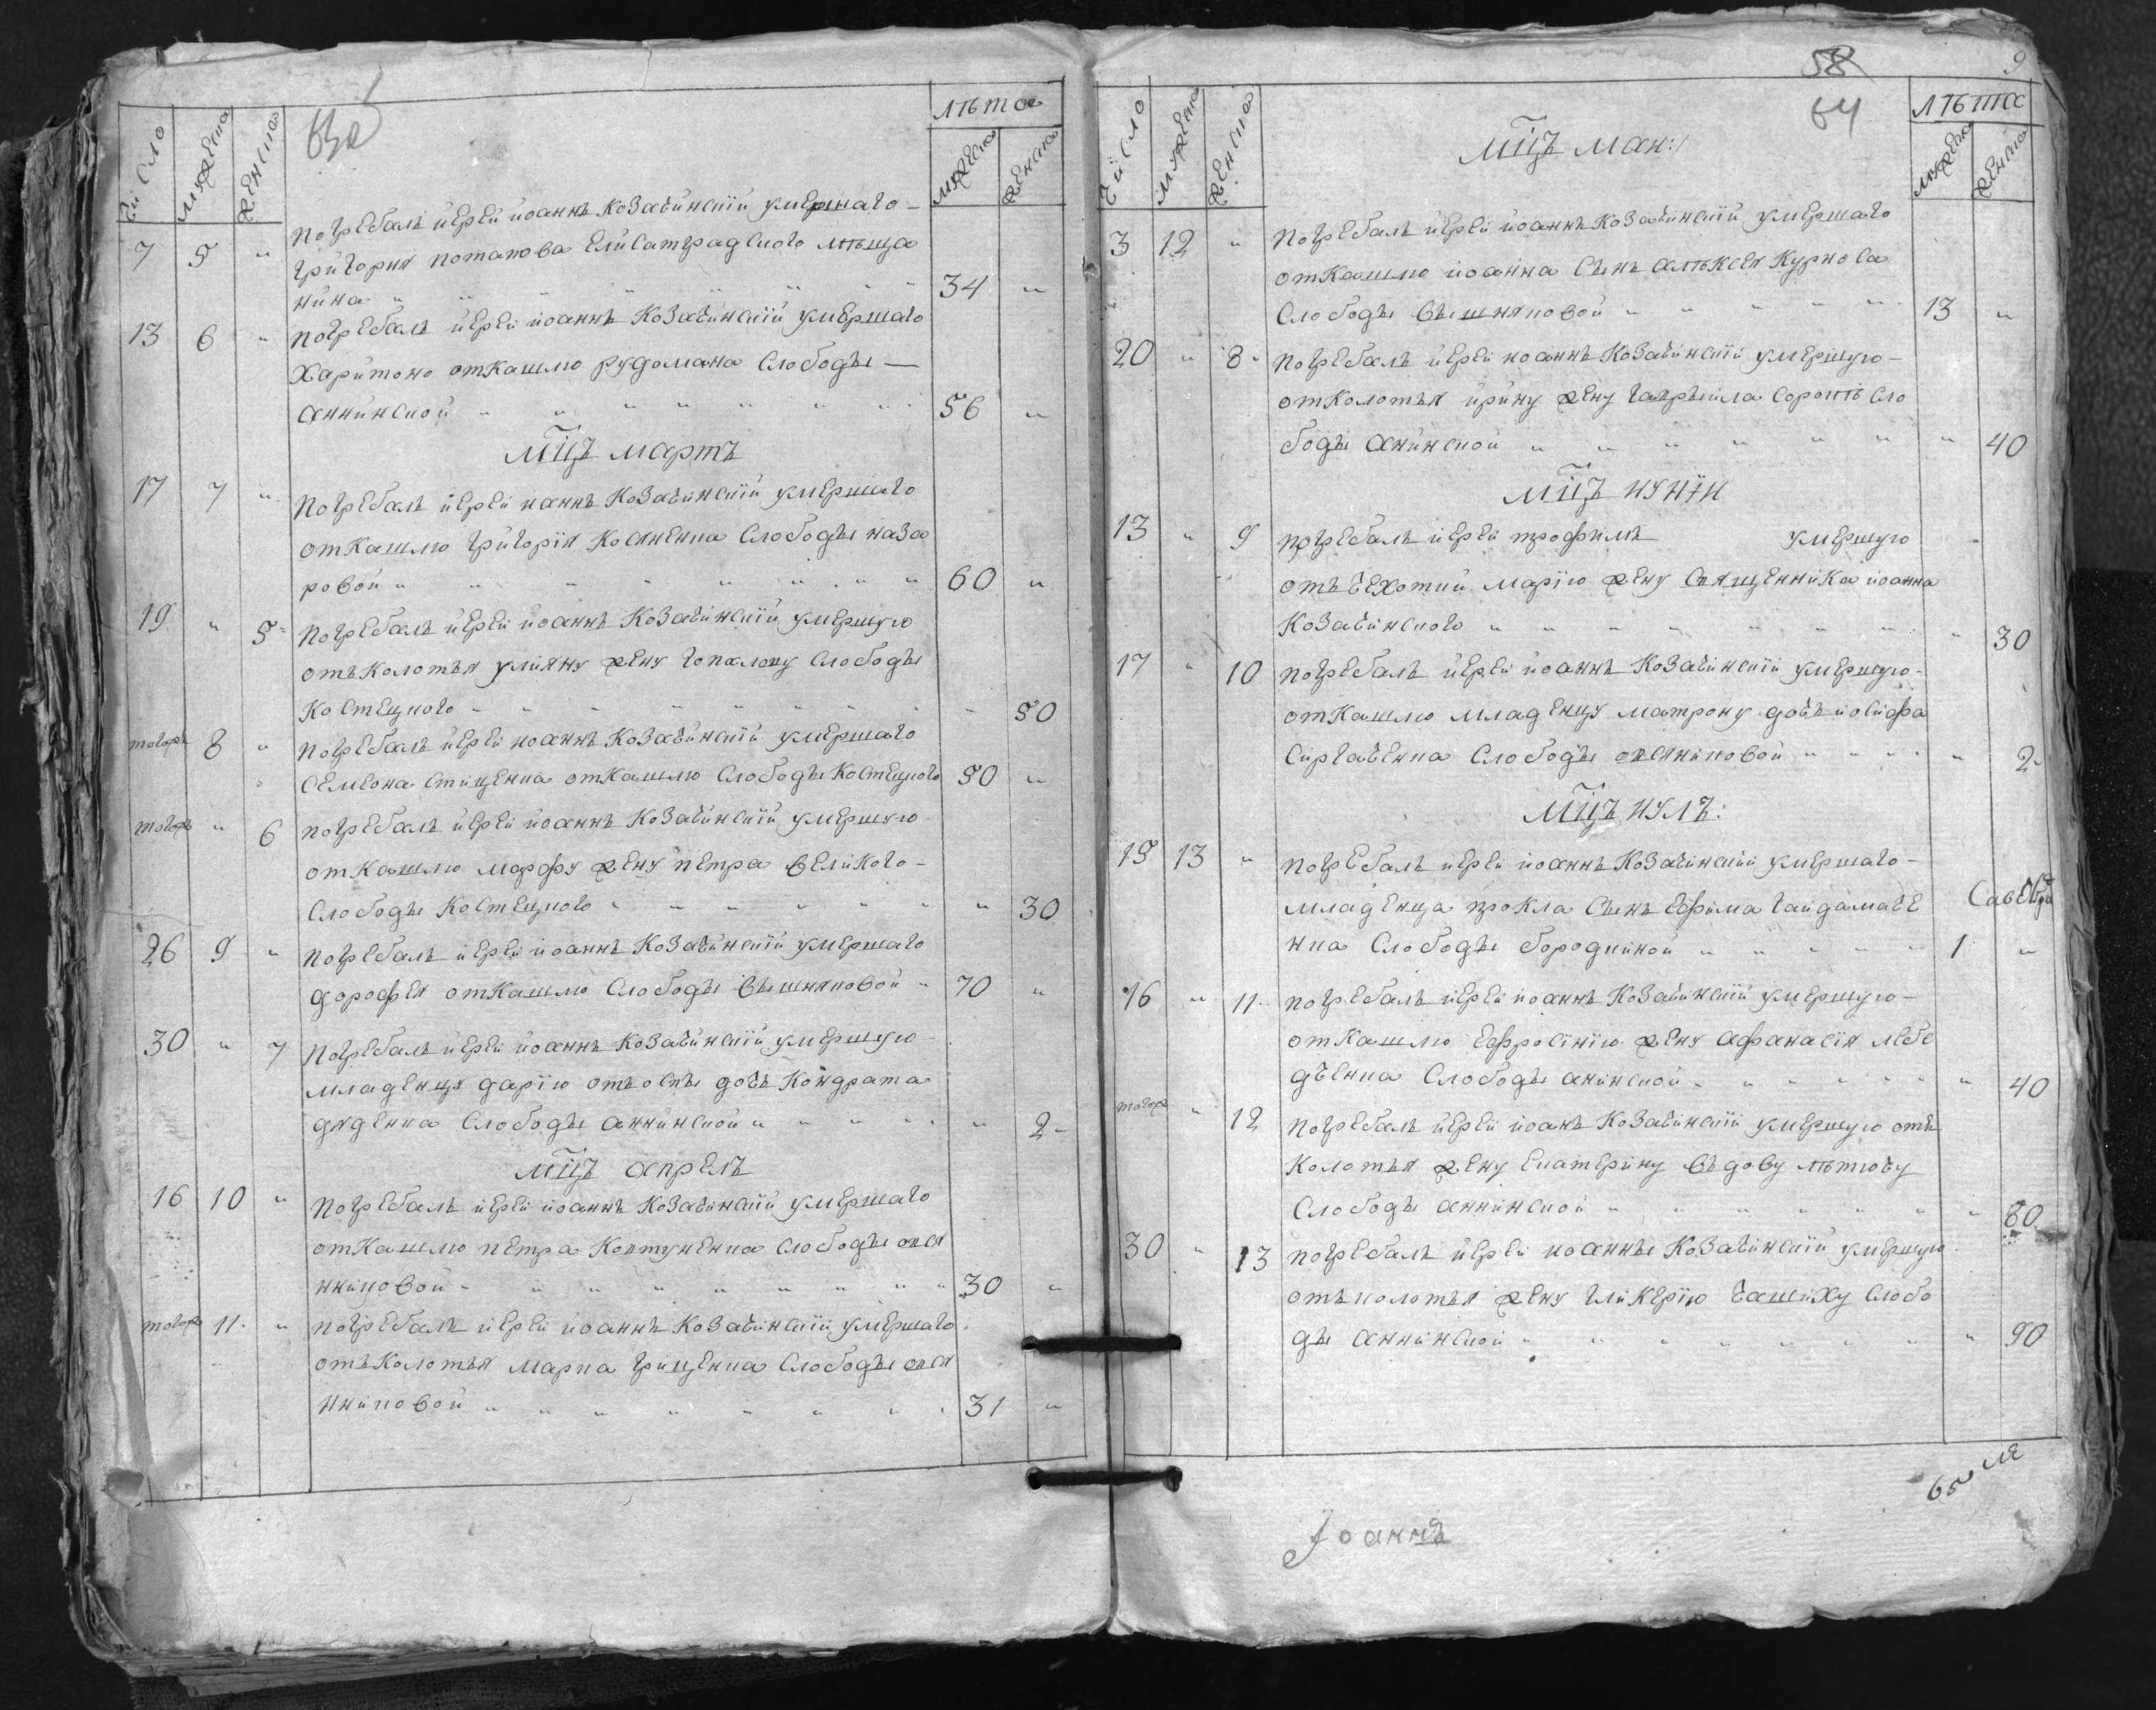 63об
Число мужеска женска
лѣта
мужеска женска
7 5 " погребалъ иерей иоаннъ Козачинский умершаго
григория потапова Елисатградского мѣща
нина " 34 "
13 6 " погребалъ иерей иоаннъ Козачинский умершаго
Харитона откашлю рудомана Слободы
аннинской " 56 "
мцъ мартъ
17 7 " погребалъ иерей ианнъ Козачинский умершаго
откашлю григория Косяненка Слободы наза
ровой " 60 "
19 " 5 погребалъ иерей иоаннъ Козачинский умершую
отъ Колотья улияну жену Слободы
Костецкого " 50
тогожъ 8 " погребалъ иерей иоаннъ Козачинский умершаго
Семеона Стиценка откашлю Слободы Костецкого 50 "
тогожъ " 6 погребалъ иерей иоаннъ Козачинский умершую
откашлю марфу жену петра великого
Слободы Костецкого " " 30
26 9 " погребалъ иерей иоаннъ Козачинский умершаго
дорофея откашлю Слободы вышняковой " 70 "
30 " 7 погребалъ иерей иоаннъ Козачинский умершую
младенця дарїю отъ оспы дочь Кондрата
дяденка Слободы аннинской " " 2
мцъ апрелъ
16 10 " погребалъ иерей иоаннъ Козачинский умершаго
откашлю петра Колтуненка Слободы овся
нниковой " 30 "
тогожъ 11 " погребалъ иерей иоаннъ Козачинский умершаго
отъ Колотья марка грищенка Слободы овся
нниковой " 31 "
58
64
9
Число мужеска женска
лѣта
мужеска женска
мцъ маи:
3 12 " погребалъ иерей иоаннъ Козачинский умершаго
откашлю иоанна Сынъ алѣксея Курносa
Слободы вышняковой " 13 "
20 " 8 погребалъ иерей иоаннъ Козачинский умершую
отколотья ирину жену гаврыила Сло
боды анинской " " 40
мцъ иунїи
13 " 9 погребалъ иерей трофимъ умершую
отъ чехотки марїю жену Священника иоанна
Козачинского " " 30
17 " 10 погребалъ иерей иоаннъ Козачинский умершую
откашлю младенцу матрону дочь иосифа
Сиргаченка Слободы овсяниковой " " 2
мцъ иулъ:
15 13 " погребалъ иерей иоаннъ Козачинский умершаго
младенца прокла Сынъ Ефима гайдамаче
нка Слободы бородкиной " 1 "
16 " 11 погребалъ иерей иоаннъ Козачинский умершую
откашлю Ефросинїю жену афанасїя лебе
дченка Слободы анинской " " 40
тогожъ " 12 погребалъ иерей иоанъ Козачинский умершую отъ
колотья жену Екатерину въдову
Слободы аннинской " " 80
30 " 13 погребалъ иерей иоаннъ Козачинский умершую
отъ колотья жену гликерїю Чашиху Слобо
ды аннинской " " 90
Іоаннъ